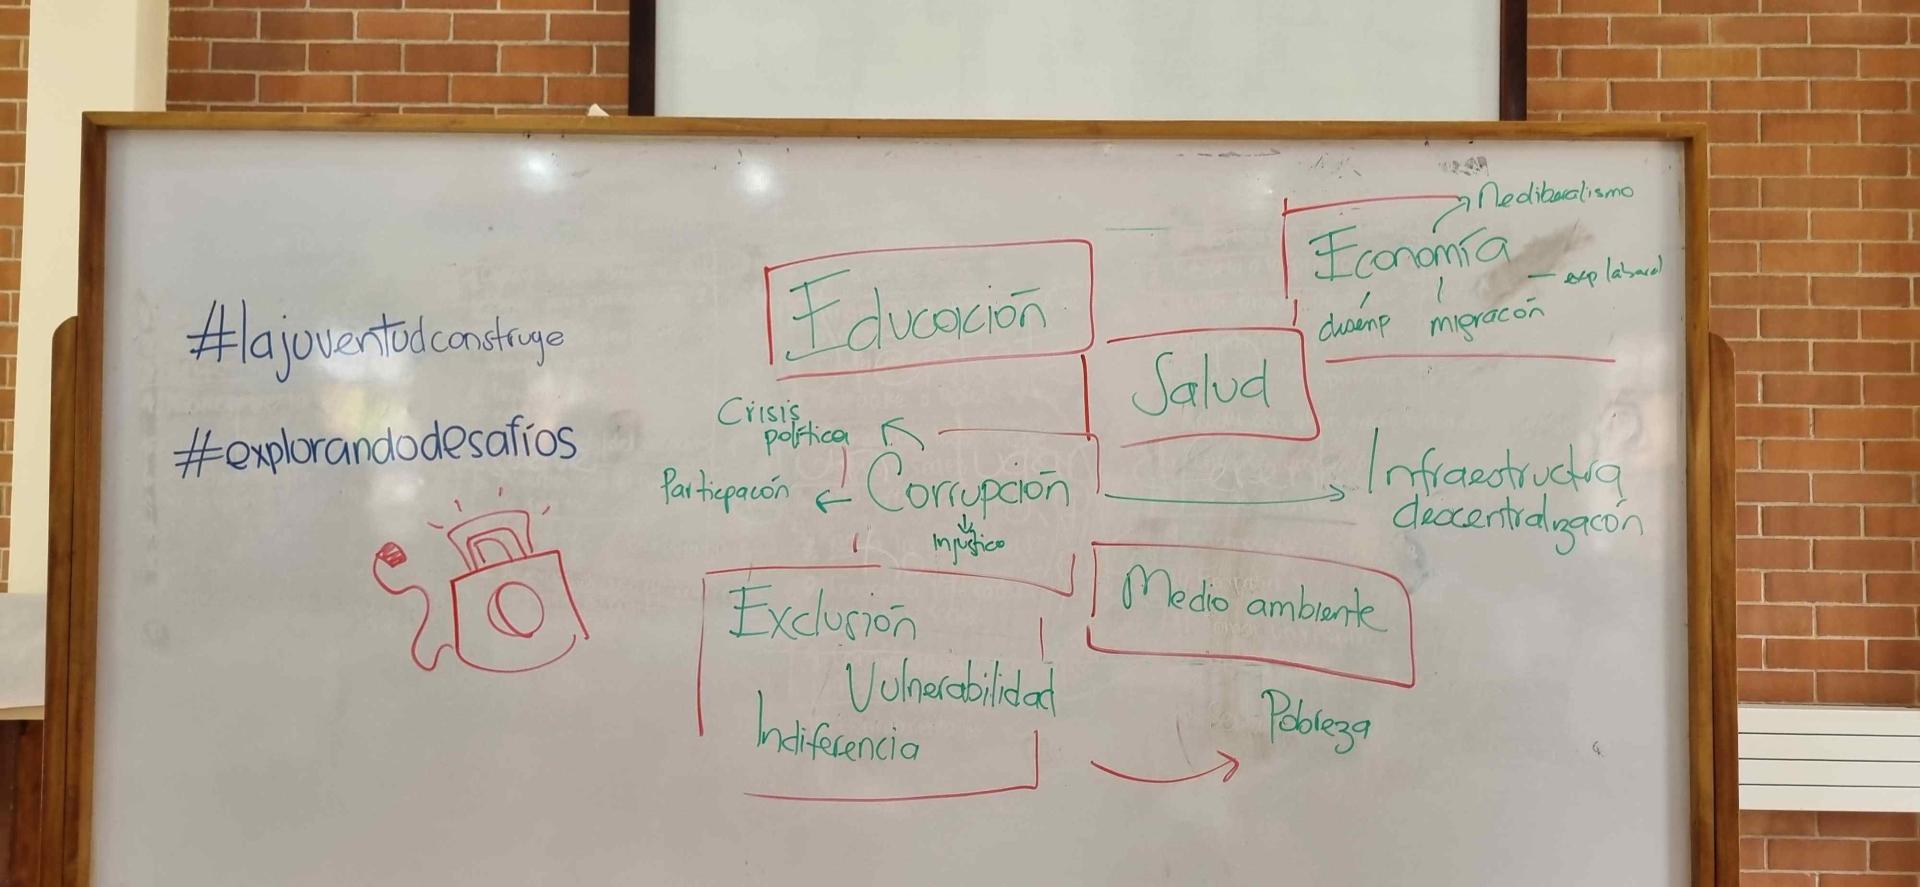 #lajuventudconstruye
#explorandodesafíos
Educación
Economía
Neoliberalismo
exp laboral
desemp
migracón
Salud
Crisis
política
Particpacón
Corrupción
Injustica
Infraestructura
descentralizacón
Exclusión
Vulnerabilidad
Indiferencia
Medio ambiente
Pobreza